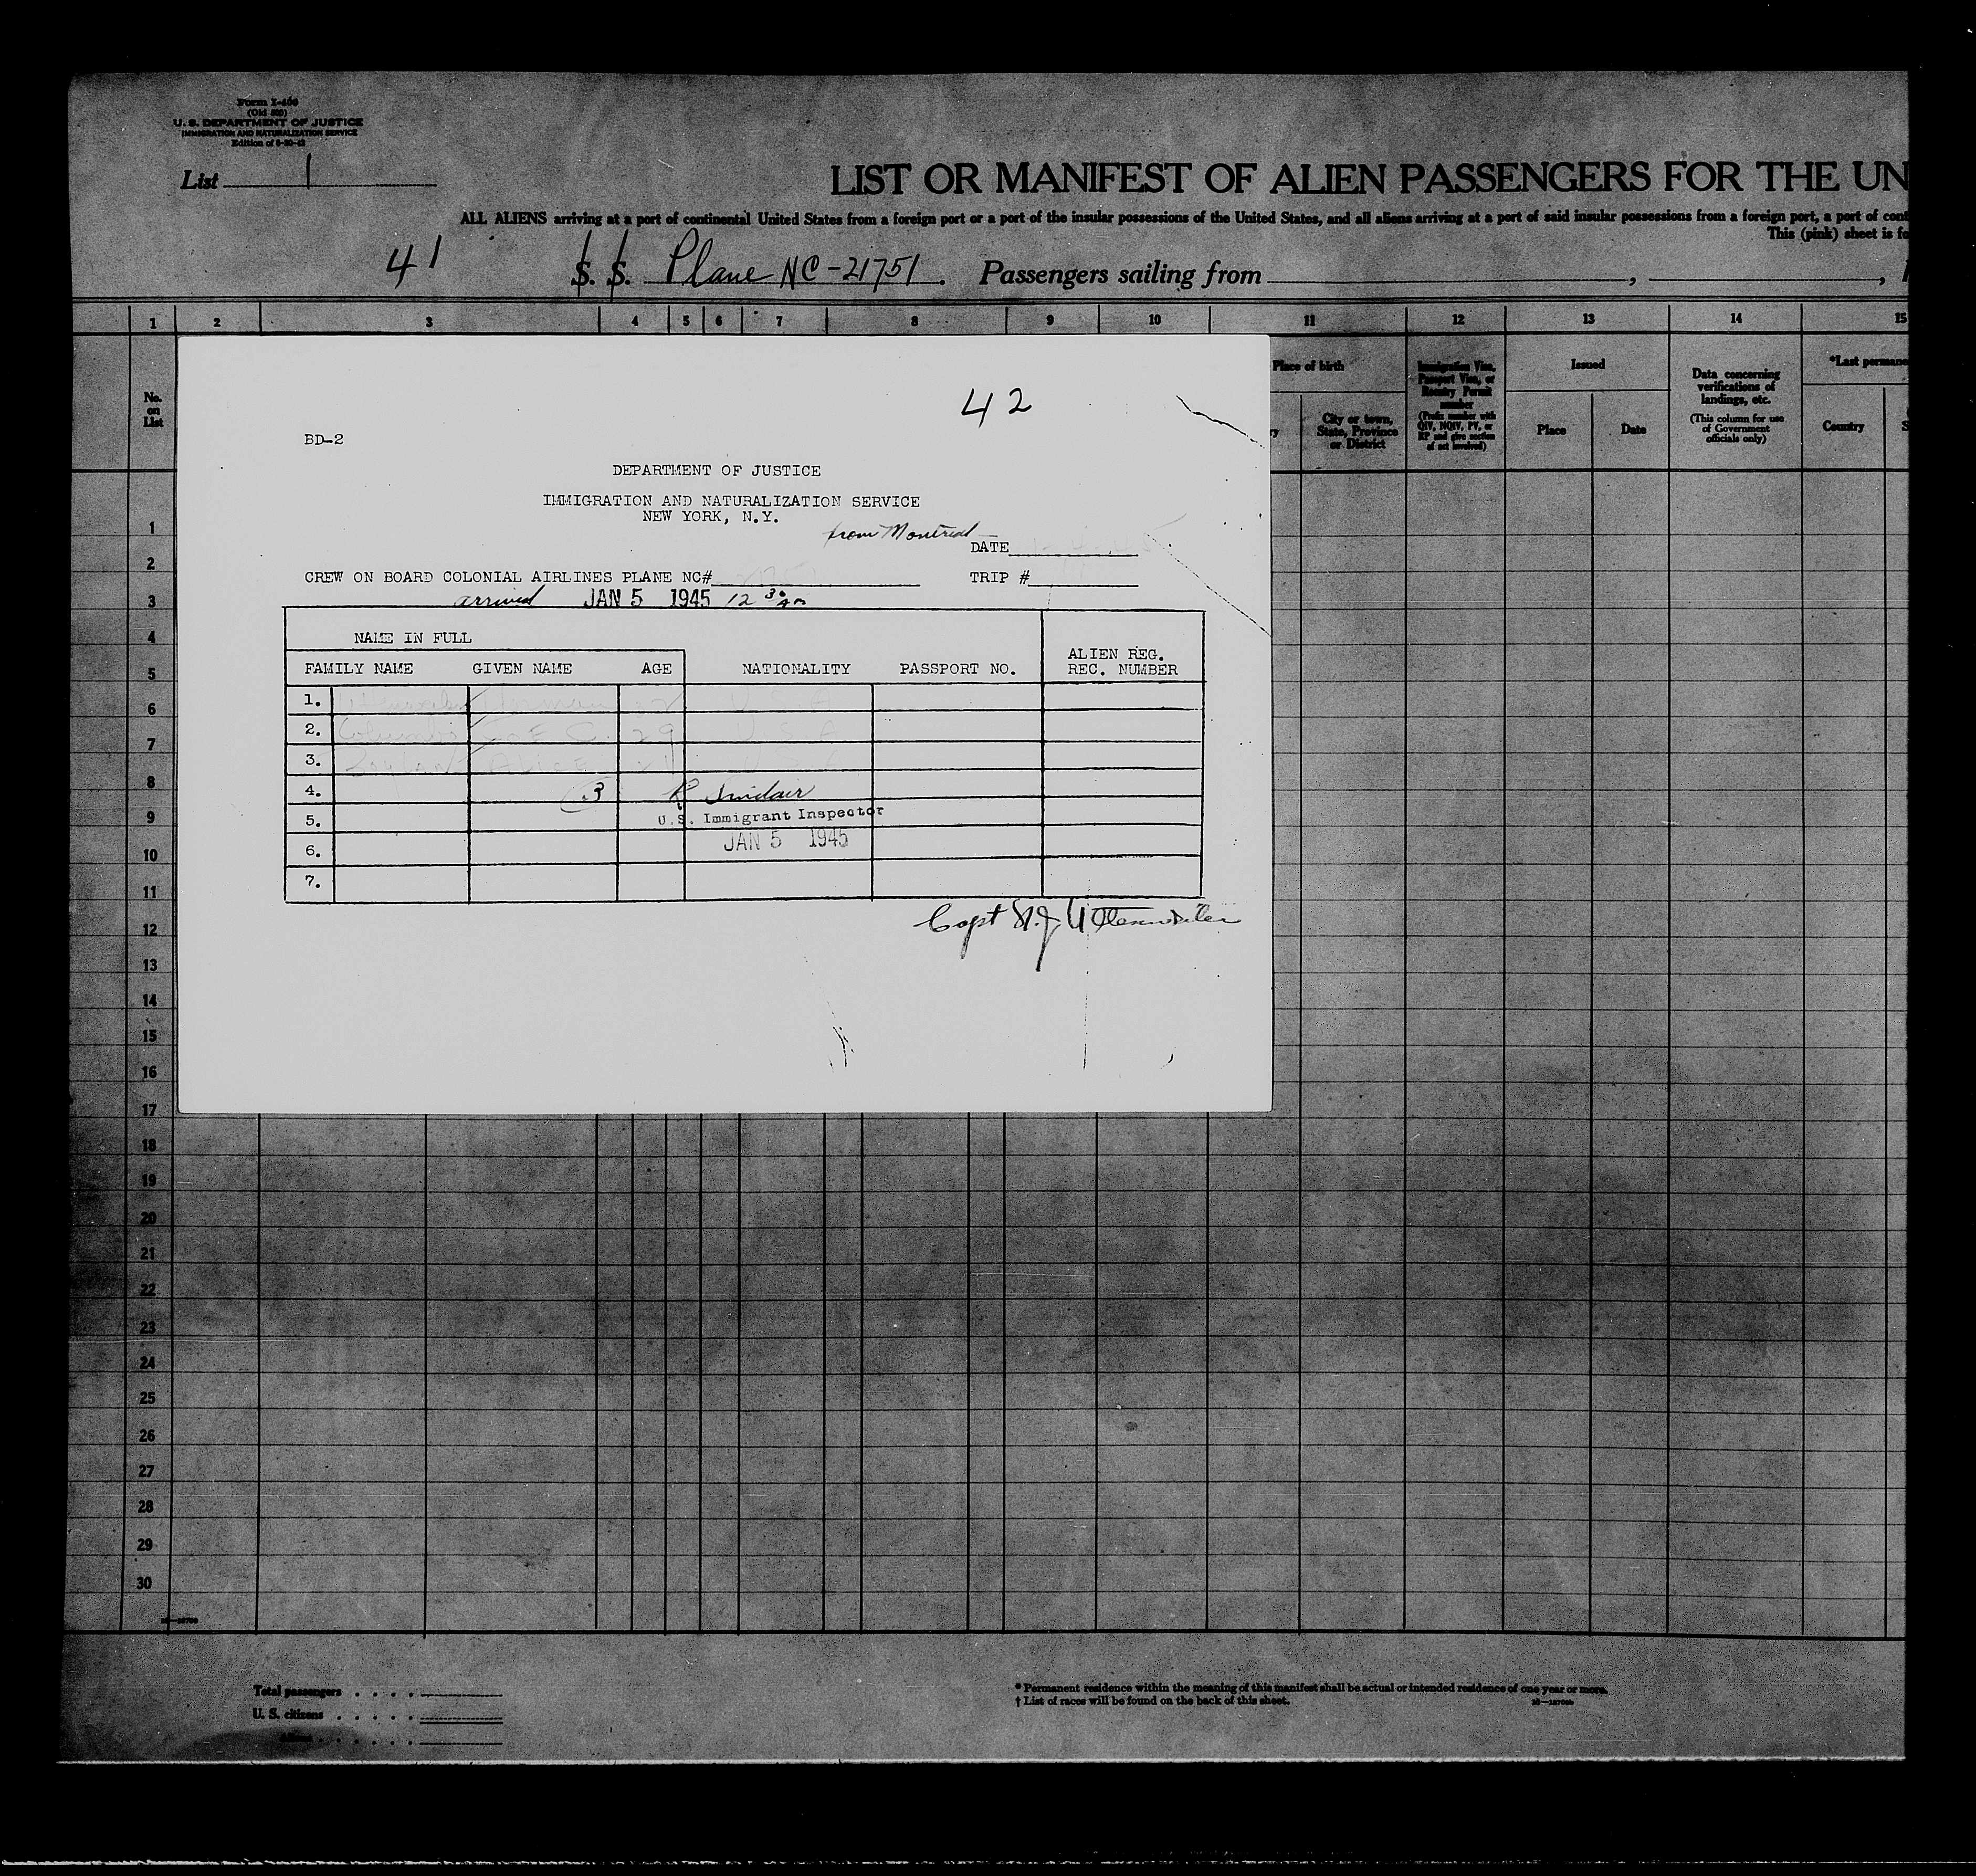 Form I-466
(Old 500)
U. S. DEPARTMENT OF JUSTICE
IMMIGRATION AND NATURALIZATION SERVICE
List 1
LIST OR MANIFEST OF ALIEN PASSENGERS FOR THE UN
ALL ALIENS arriving at a port of continental United States from a foreign port or a port of the insular possessions of the United States, and all aliens arriving at a port of said insular possessions from a foreign port, a port of cont
This (pink) sheet is fo
41 S. S. Plane NC-21751. Passengers sailing from , ,
1 2 3 4 5 6 7 8 9 10 11 12 13 14 15
No. on List
Place of birth
City or town, State, Province or District
Immigration Visa, Passport Visa, or Reentry Permit number
(Prefix number with QIV, NQIV, PV, or RP and give section of act involved)
Issued
Place
Date
Data concerning verifications of landings, etc.
(This column for use of Government officials only)
*Last permane
Country
42
BD-2
DEPARTMENT OF JUSTICE
IMMIGRATION AND NATURALIZATION SERVICE
NEW YORK, N.Y.
from Montreal
DATE
CREW ON BOARD COLONIAL AIRLINES PLANE NC# TRIP #
arrived JAN 5 1945 12 30 AM
NAME IN FULL
FAMILY NAME GIVEN NAME AGE NATIONALITY PASSPORT NO. ALIEN REG. REC. NUMBER
1.
2. 29 U S A
3.
4. 3 R Sinclair
5. U.S. Immigrant Inspector
6. JAN 5 1945
7.
Capt
1
2
3
4
5
6
7
8
9
10
11
12
13
14
15
16
17
18
19
20
21
22
23
24
25
26
27
28
29
30
Total passengers
U. S. citizens
* Permanent residence within the meaning of this manifest shall be actual or intended residence of one year or more.
† List of races will be found on the back of this sheet.